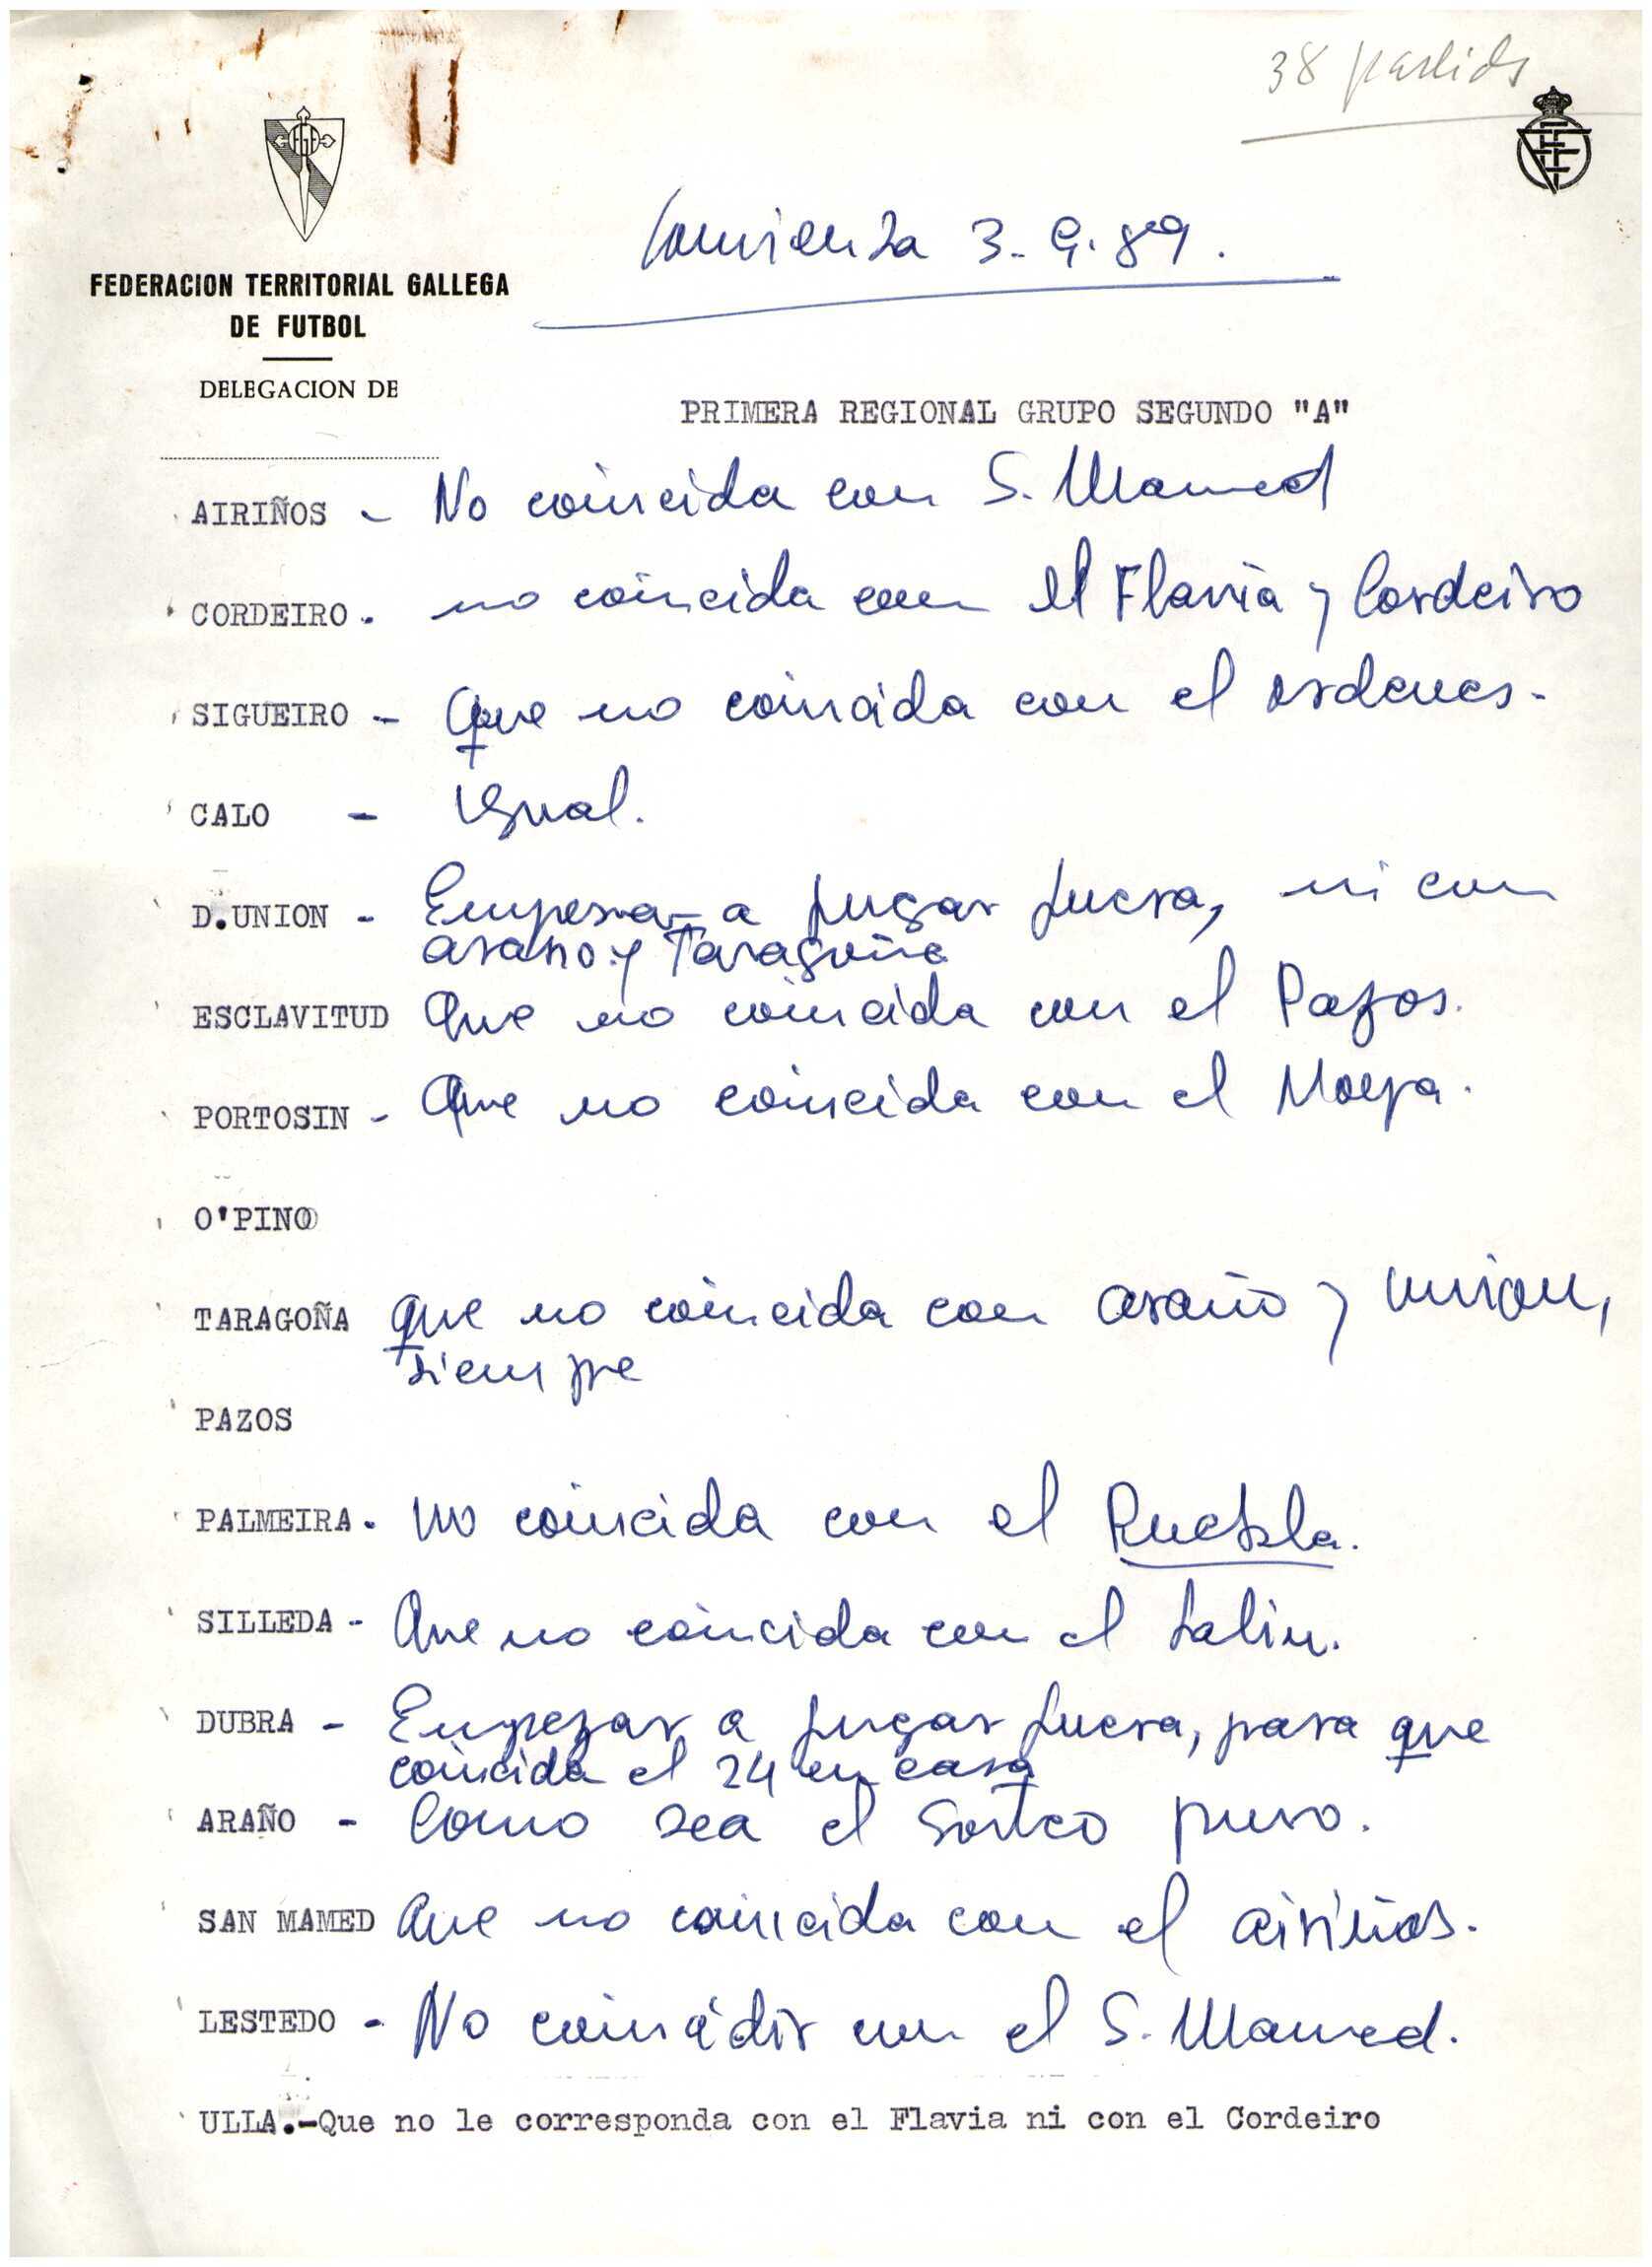 38 partids
FGF
Comienza 3-9-89.
FEDERACION TERRITORIAL GALLEGA
DE FUTBOL
DELEGACION DE
PRIMERA REGIONAL GRUPO SEGUNDO "A"
AIRIÑOS - No coincida con S. Mamed
CORDEIRO. no coincida con el Flavia y Cordeiro
SIGUEIRO - Que no coincida con el ordenes-
CALO - Igual.
D.UNION - Empezar a jugar fuera, ni con
araño y Taragoña
ESCLAVITUD Que no coincida con el Pazos.
PORTOSIN - Que no coincida con el
O'PINO
TARAGOÑA que no coincida con araño y union,
siempre
PAZOS
PALMEIRA. no coincida con el Puebla.
SILLEDA - Que no coincida con el Lalin.
DUBRA - Empezar a jugar fuera, para que
coincida el 24 en casa
ARAÑO - Como sea el sorteo puro.
SAN MAMED Que no coincida con el airiños.
LESTEDO - No coincidir con el S. Mamed.
ULLA.-Que no le corresponda con el Flavia ni con el Cordeiro